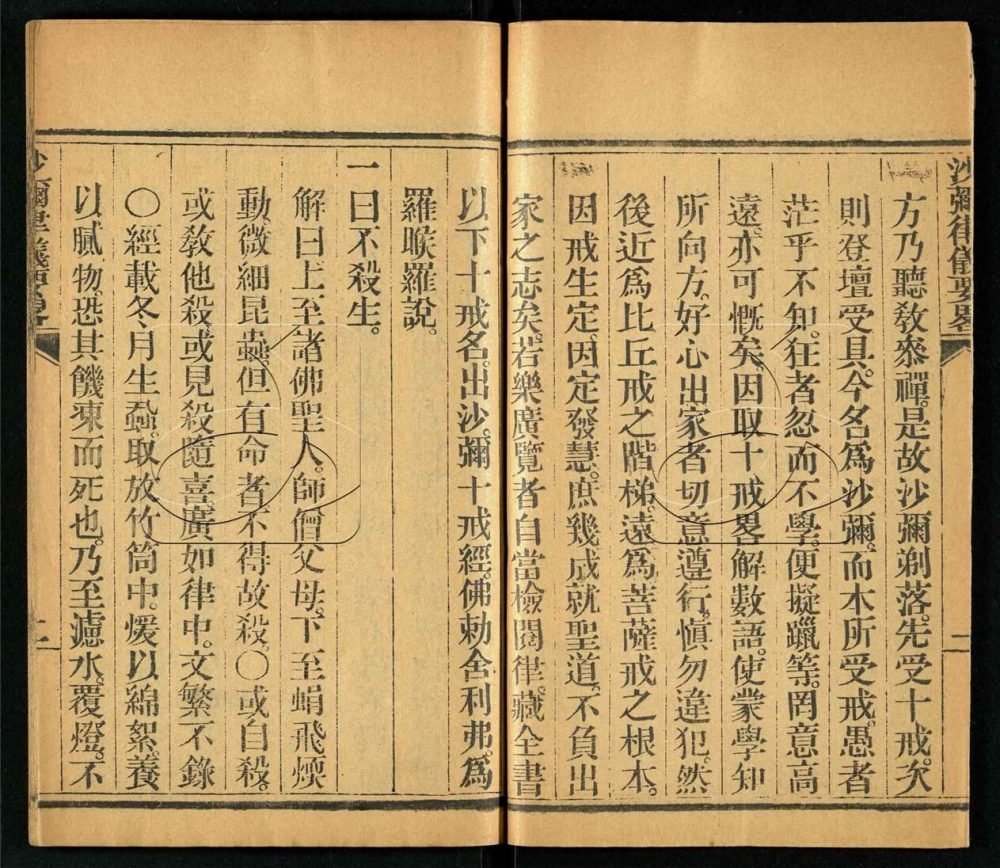 沙彌律儀要畧
方乃聽敎叅禪。是故沙彌剃落。先受十戒。次
則登壇受具。今名爲沙彌。而本所受戒。愚者
茫乎不知。狂者忽而不學。便擬躐等。罔意高
遠。亦可慨矣。因取十戒畧解數語。使蒙學知
所向方。好心出家者。切意遵行。愼勿違犯。然
後近爲比丘戒之階梯。遠爲菩薩戒之根本。
因戒生定。因定發慧。庶幾成就聖道。不負出
家之志矣。若樂廣覽者。自當檢閱律藏全書
以下十戒名。出沙彌十戒經。佛勅舍利弗。爲
羅睺羅說。
一曰不殺生。
解曰。上至諸佛聖人。師僧父母。下至蜎飛蝡
動。微細昆蟲。但有命者。不得故殺。〇或自殺。
或敎他殺。或見殺隨喜。廣如律中。文繁不錄
〇經載冬月生蝨。取放竹筒中。煖以綿絮。養
以膩物。恐其饑凍而死也。乃至濾水。覆燈。不
沙彌律儀要畧
二